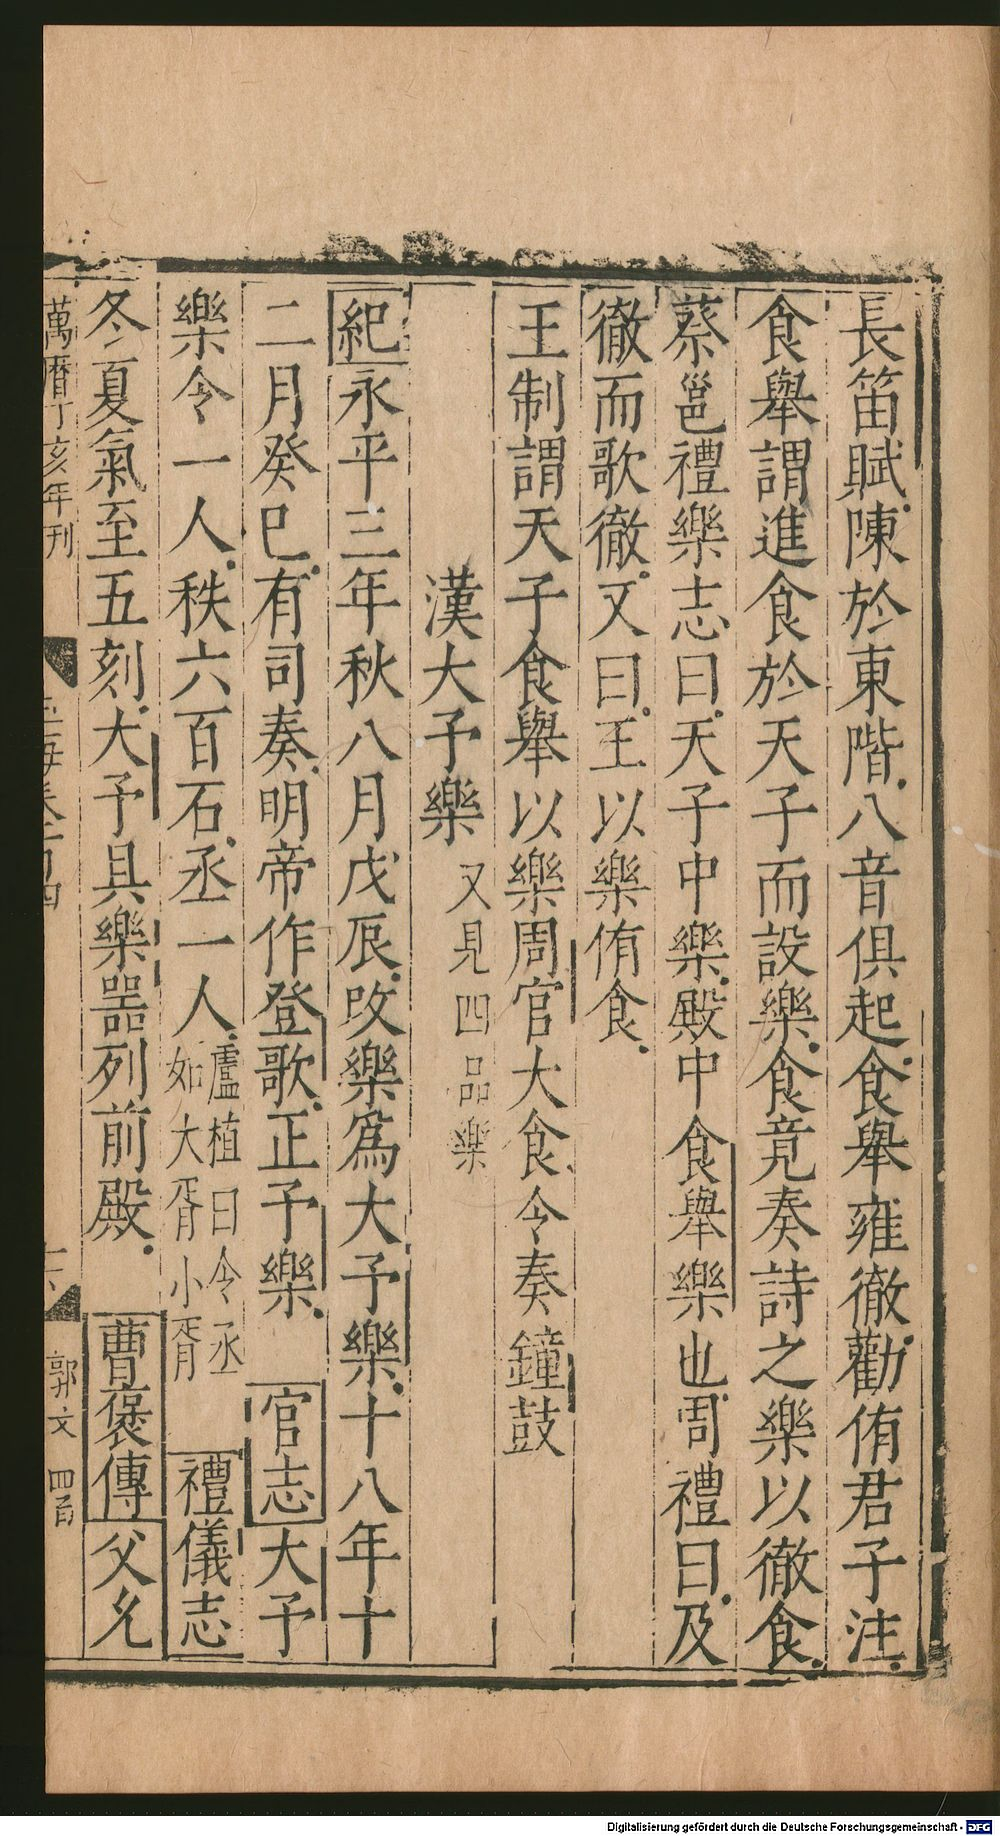 長笛賦陳於東階八音俱起食舉雍徹勸侑君子注
食舉謂進食於天子而設樂食竟奏詩之樂以徹食
蔡邕禮樂志曰天子中樂殿中食舉樂也周禮曰及
徹而歌徹又曰王以樂侑食
王制謂天子食舉以樂周官大食令奏鐘鼓
漢大予樂 又見四品樂
紀永平三年秋八月戊辰改樂爲大予樂十八年十
二月癸巳有司奏明帝作登歌正予樂 官志大予
樂令一人秩六百石丞一人盧植曰令丞如大胥小胥 禮儀志
冬夏氣至五刻大予具樂器列前殿 曹褒傳父充
萬曆丁亥年刊 郭文 四百
Digitalisierung gefördert durch die Deutsche Forschungsgemeinschaft - DFG